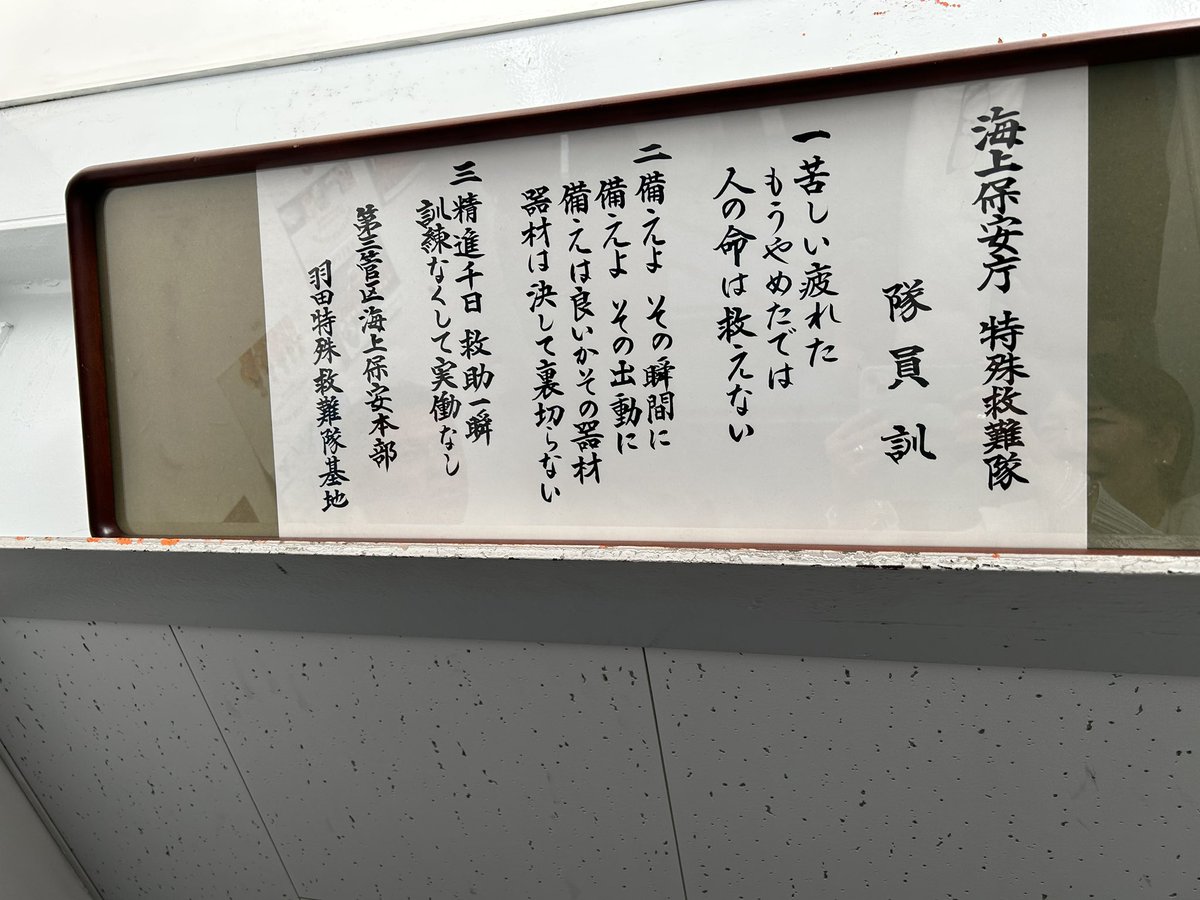 海上保安庁 特殊救難隊
隊員訓
一 苦しい疲れた
もうやめたでは
人の命は救えない
二 備えよ その瞬間に
備えよ その出動に
備えは良いかその器材
器材は決して裏切らない
三 精進千日 救助一瞬
訓練なくして実働なし
第三管区海上保安本部
羽田特殊救難隊基地